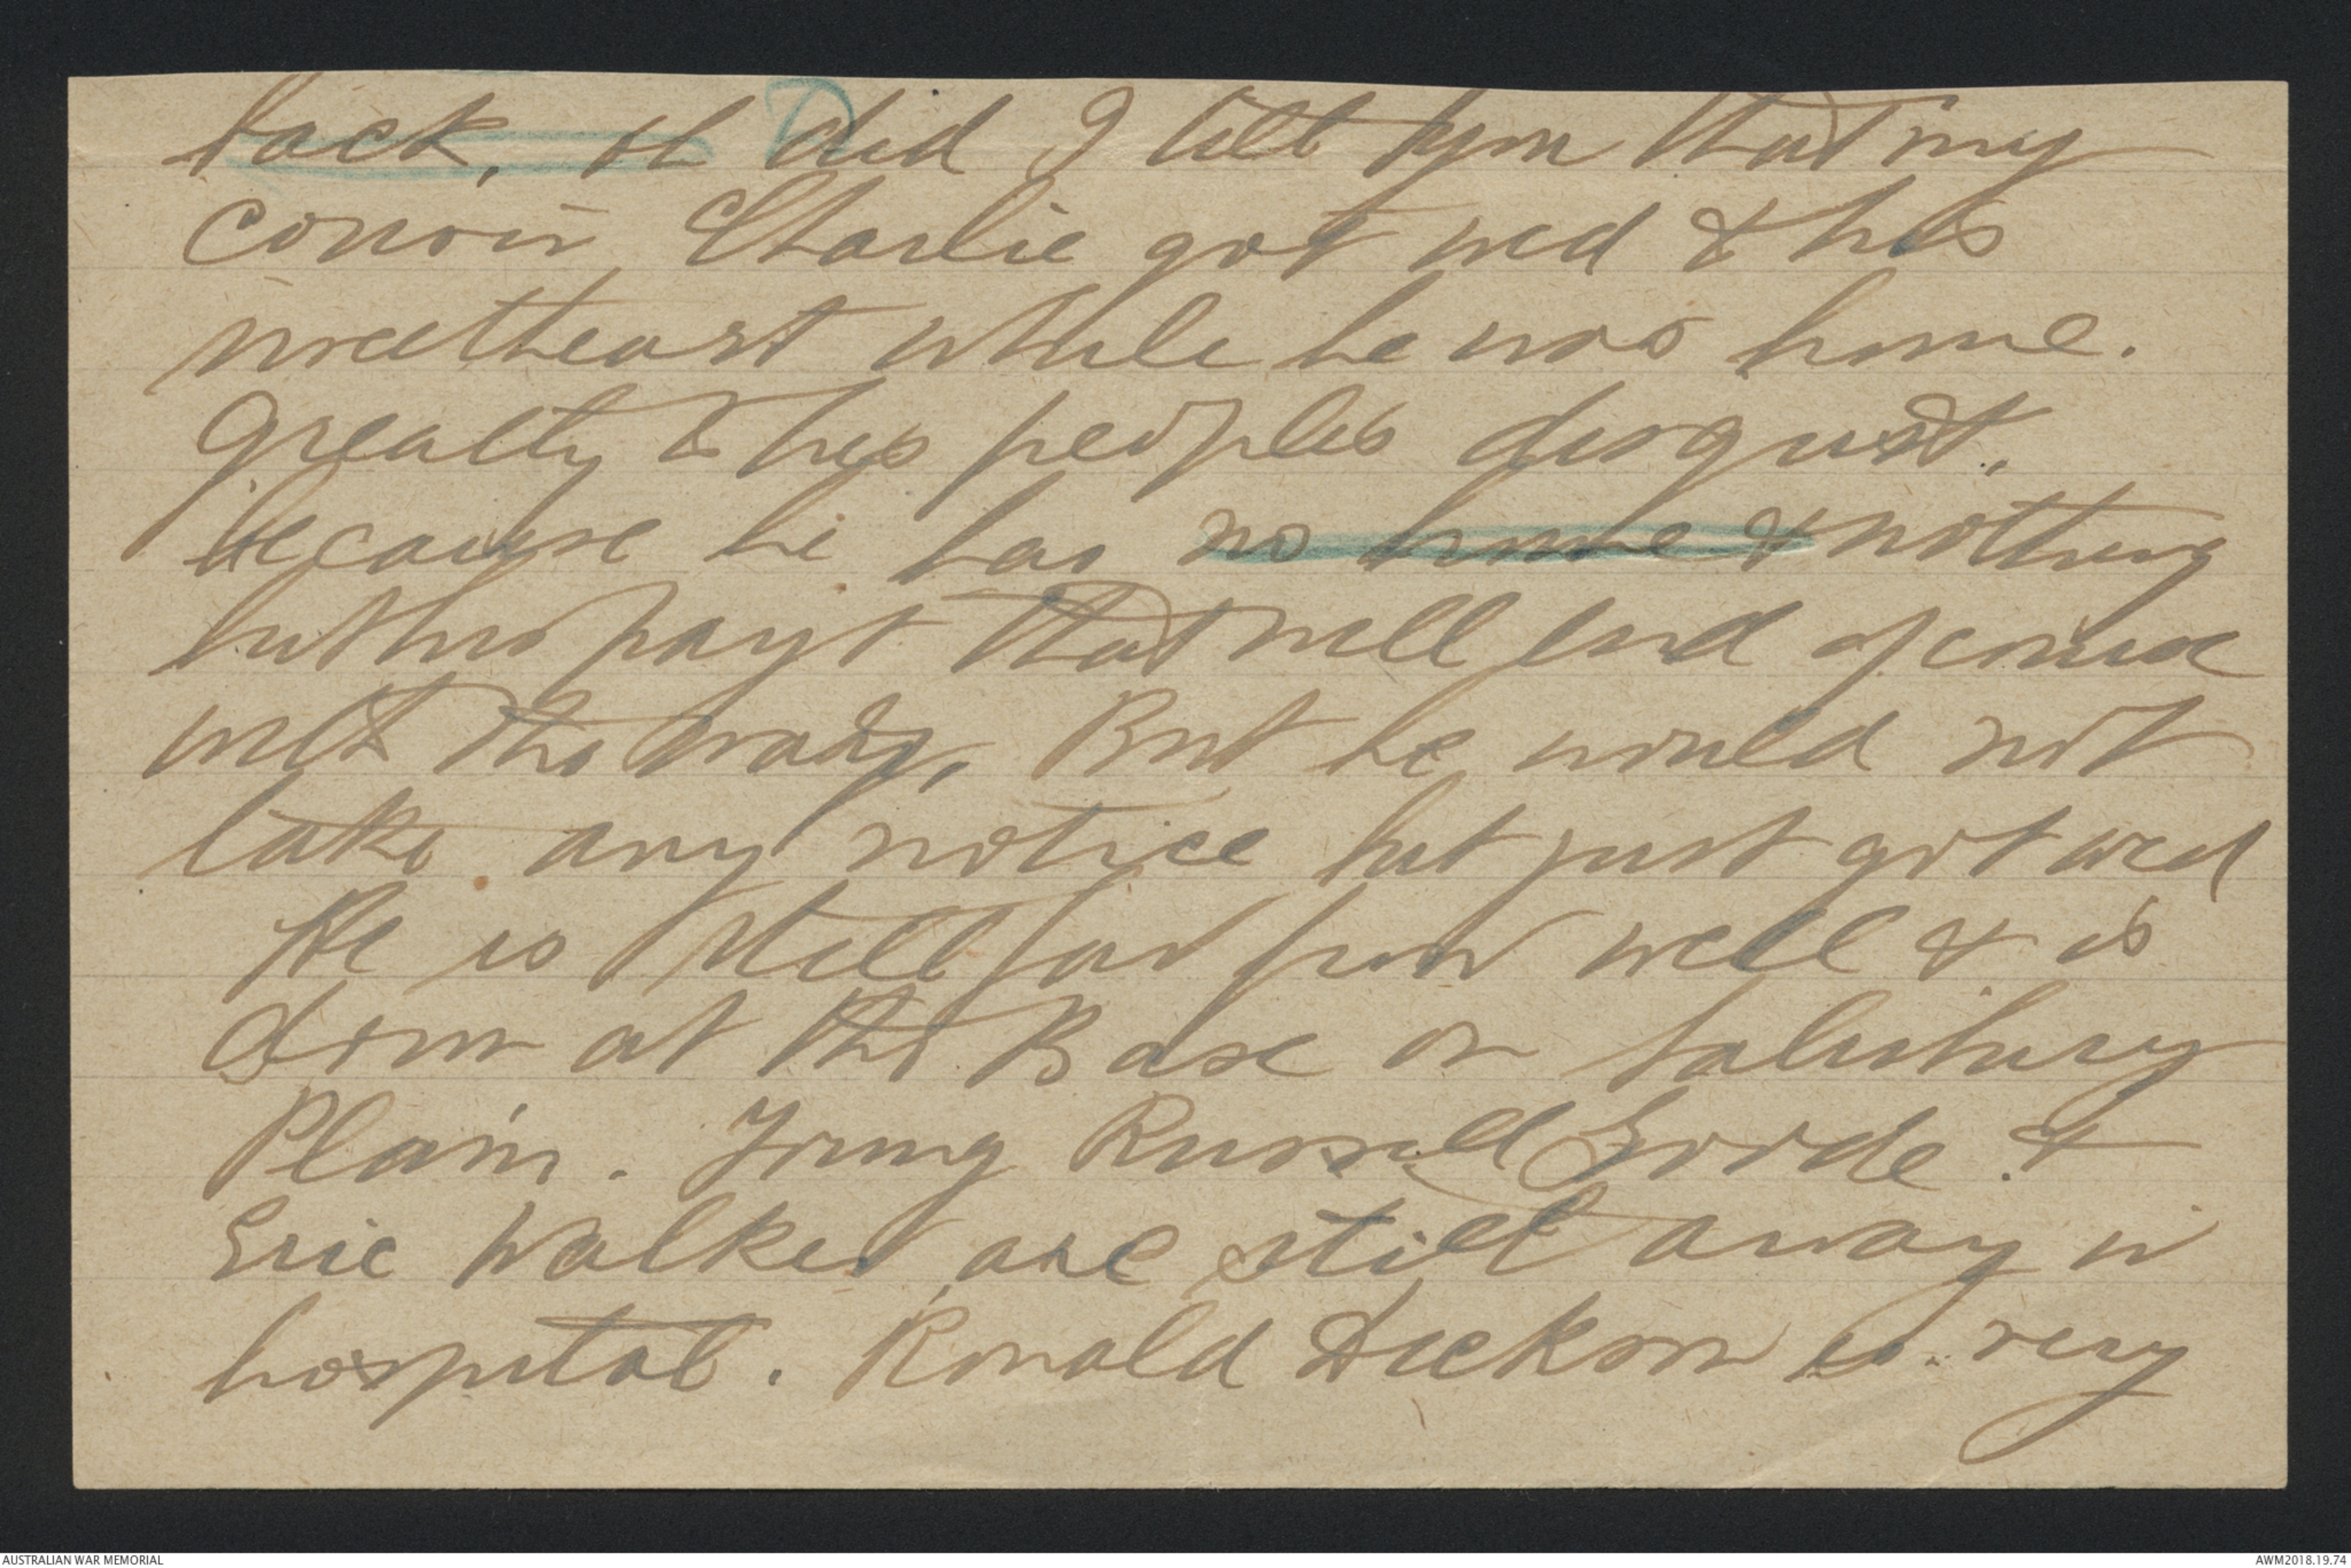 back, oh did I tell you that my
cousin Charlie got wed to his
sweetheart while he was home.
Greatly to his peoples disgust,
because he has no home & nothing
but his pay & that will end of course
with the war, But he would not
take any notice but just got wed
He is still far from well & is
down at the Base on Salisbury
Plain. Young Russell Goode &
Eric Walker are still away in
hospital. Ronald Dickson is very
AUSTRALIAN WAR MEMORIAL
AWM2018.19.74